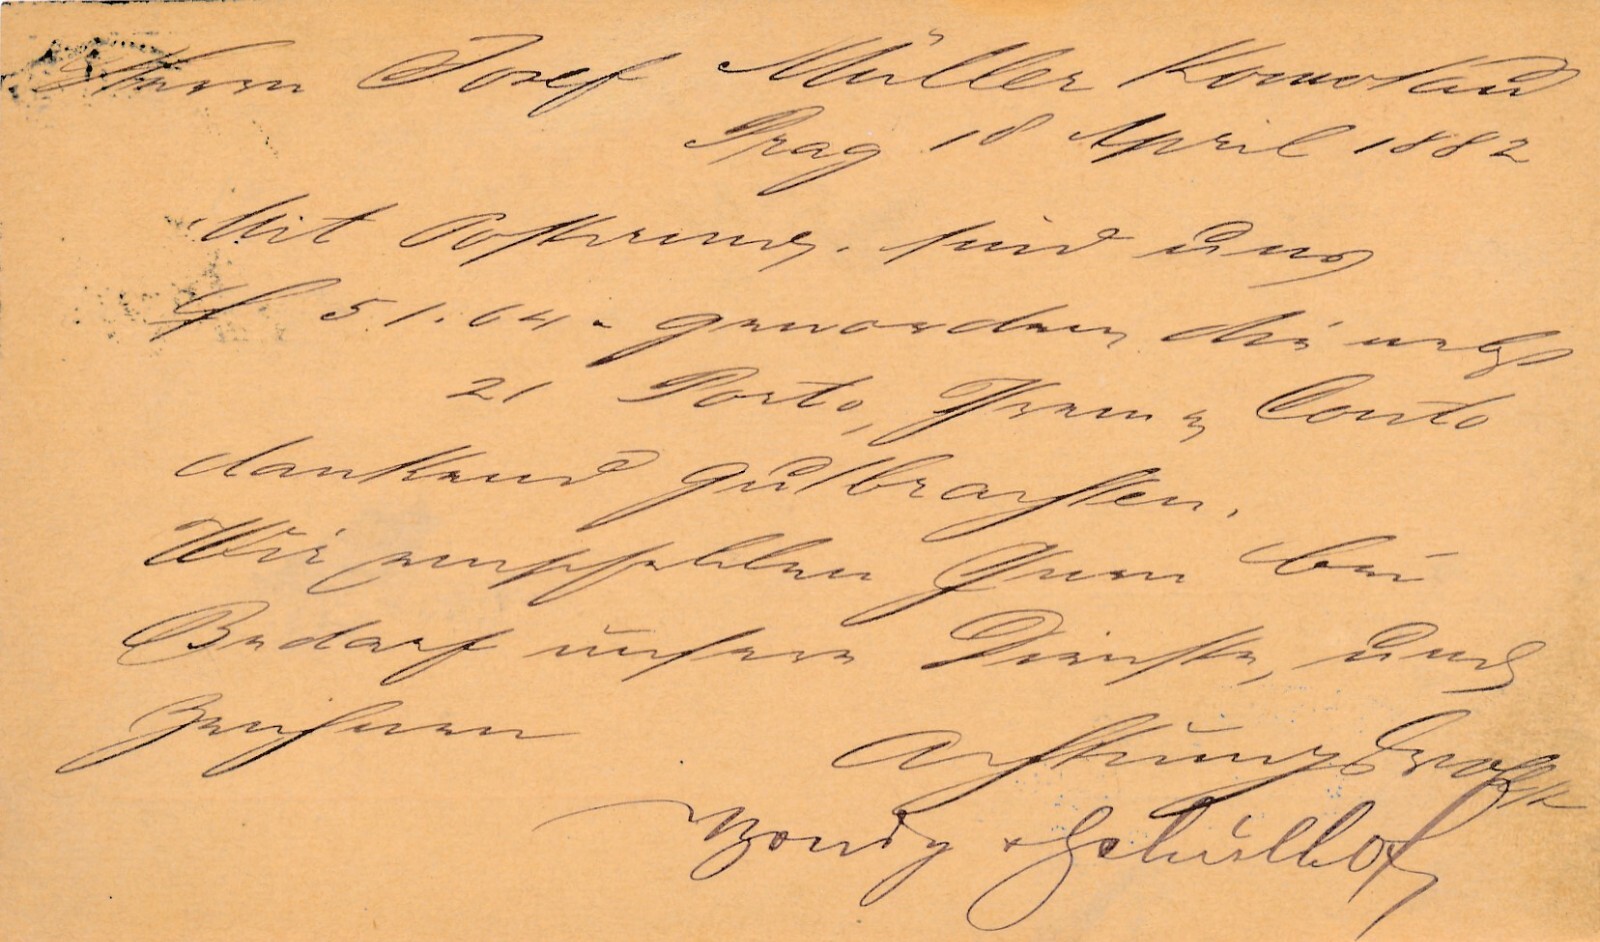 Herrn Josef Müller Komotau
Prag 18 April 1882
Mit sind uns
f 51.64. geworden die
21 Porto, Ihrem Conto
dankend gutbrachten.
Wir empfehlen Ihnen bei
Bedarf unsere Dienste, und
zeichnen
Achtungsvollst
Bondy & Schülhof